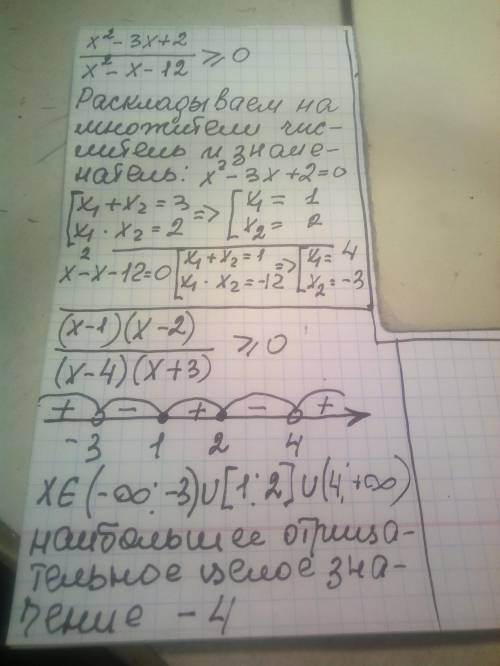 x² - 3x + 2 / x² - x - 12 ⩾ 0
Раскладываем на
множители чис-
литель и знаме-
натель: x² - 3x + 2 = 0
[x₁ + x₂ = 3 => [x₁ = 1
[x₁ · x₂ = 2 [x₂ = 2
x² - x - 12 = 0 [x₁ + x₂ = 1 => [x₁ = 4
[x₁ · x₂ = -12 [x₂ = -3
(x-1)(x-2) / (x-4)(x+3) ⩾ 0
+ - + - +
-3 1 2 4
x∈(-∞; -3)∪[1; 2]∪(4; +∞)
наибольшее отрица-
тельное целое зна-
чение -4